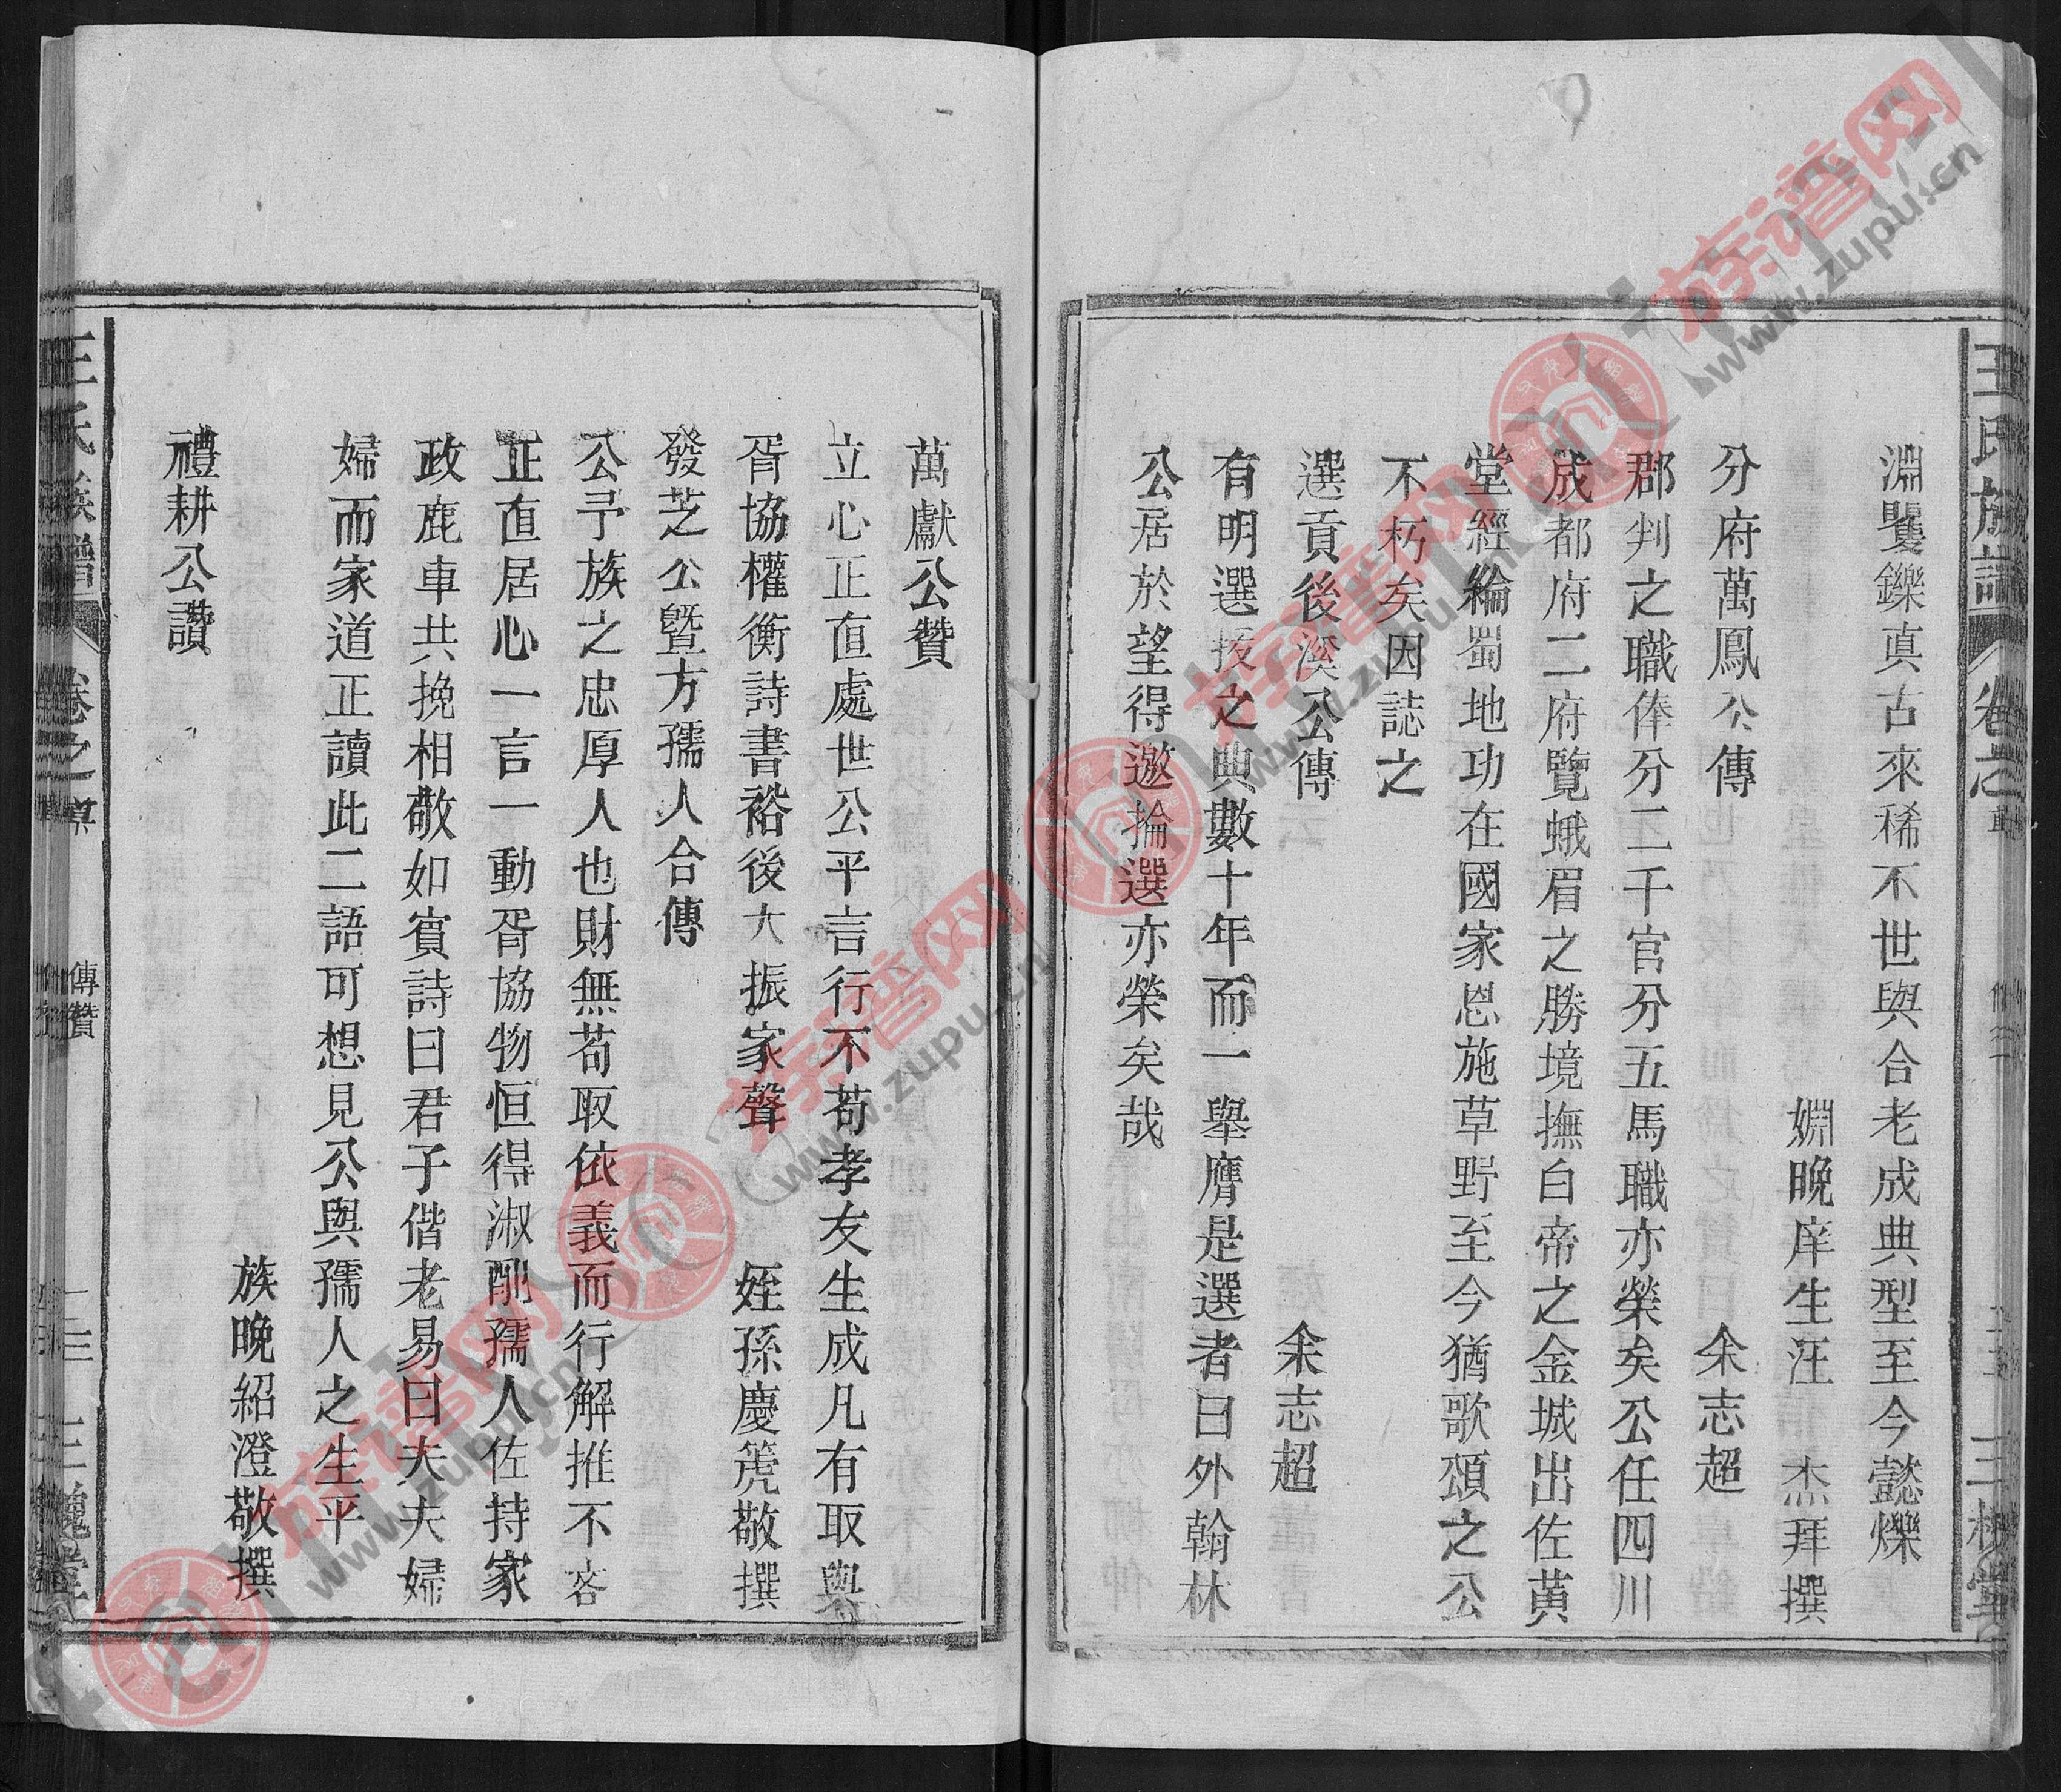 王氏族譜
卷之
三槐堂
淵矍鑠真古來稀不世與合老成典型至今懿爍
姻晚庠生汪　杰拜撰
分府萬鳳公傳
余志超
郡判之職俸分二千官分五馬職亦榮矣公任四川
成都府二府覽蛾眉之勝境撫白帝之金城出佐黃
堂經綸蜀地功在國家恩施草野至今猶歌頌之公
不朽矣因誌之
選貢後溪公傳
余志超
有明選拔之典數十年而一舉膺是選者曰外翰林
公居於望得邀掄選亦榮矣哉
萬獻公贊
立心正直處世公平言行不苟孝友生成凡有取與
胥協權衡詩書裕後大振家聲
姪孫慶篪敬撰
發芝公暨方孺人合傳
公予族之忠厚人也財無苟取依義而行解推不吝
正直居心一言一動胥協物恒得淑配孺人佐持家
政鹿車共挽相敬如賓詩曰君子偕老易曰夫夫婦
婦而家道正讀此二語可想見公與孺人之生平
族晚紹澄敬撰
禮耕公讚
王氏族譜
卷之
傳贊
三槐堂
族谱网
www.zupu.cn
族谱网
www.zupu.cn
族谱网
www.zupu.cn
族谱网
www.zupu.cn